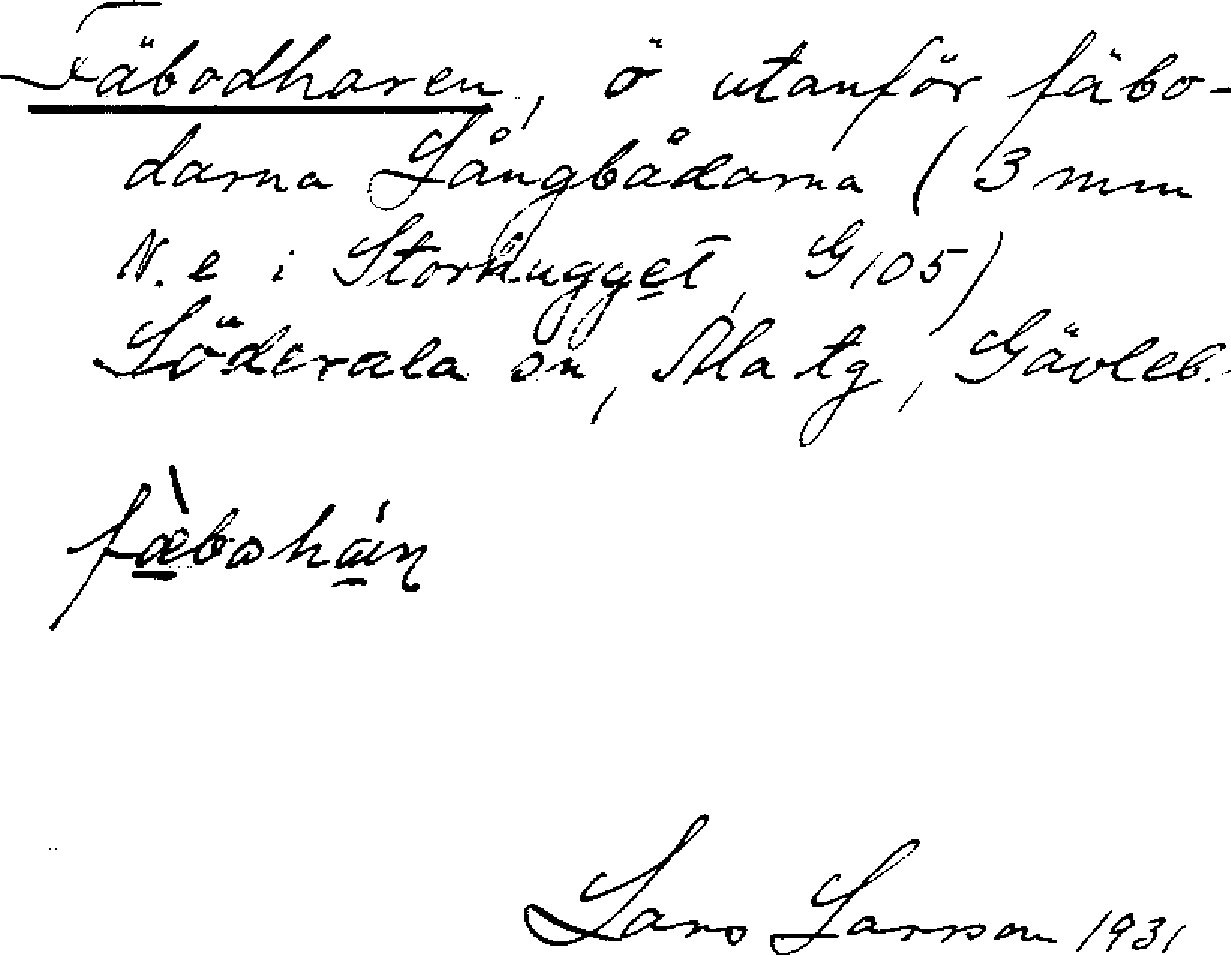 Fäbodharen, ö utanför fäbo-
darna Långbådarna (3 mm
N. e i Storhugget, G 105)
Söderala sn, Ala tg, Gävleb.
fæ̀bohán
Lars Larsson 1931